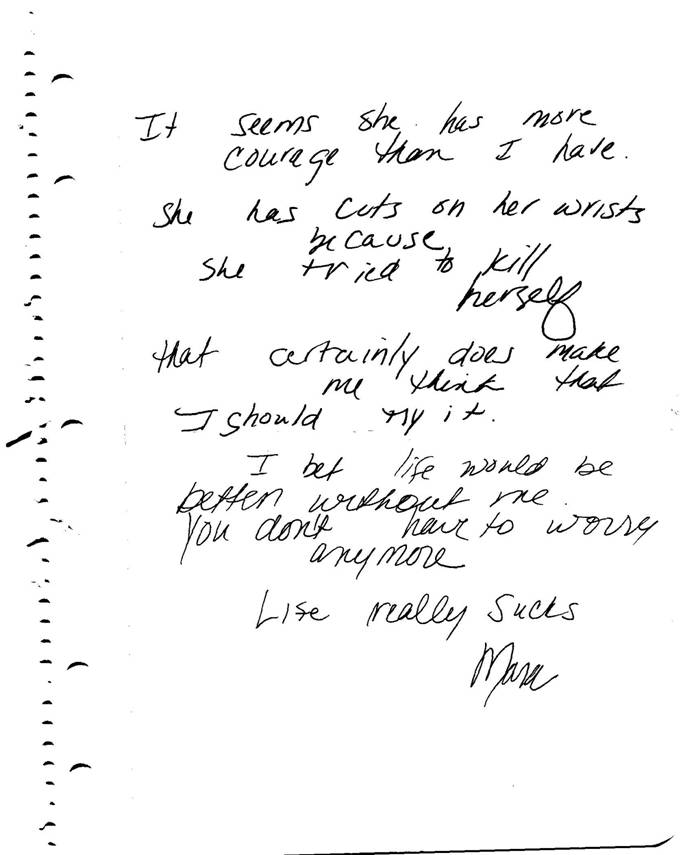 It seems she has more
courage than I have.
She has cuts on her wrists
because
she tried to kill
herself
that certainly does make
me think that
I should try it.
I bet life would be
better without me.
You don't have to worry
anymore
Life really sucks
Mara